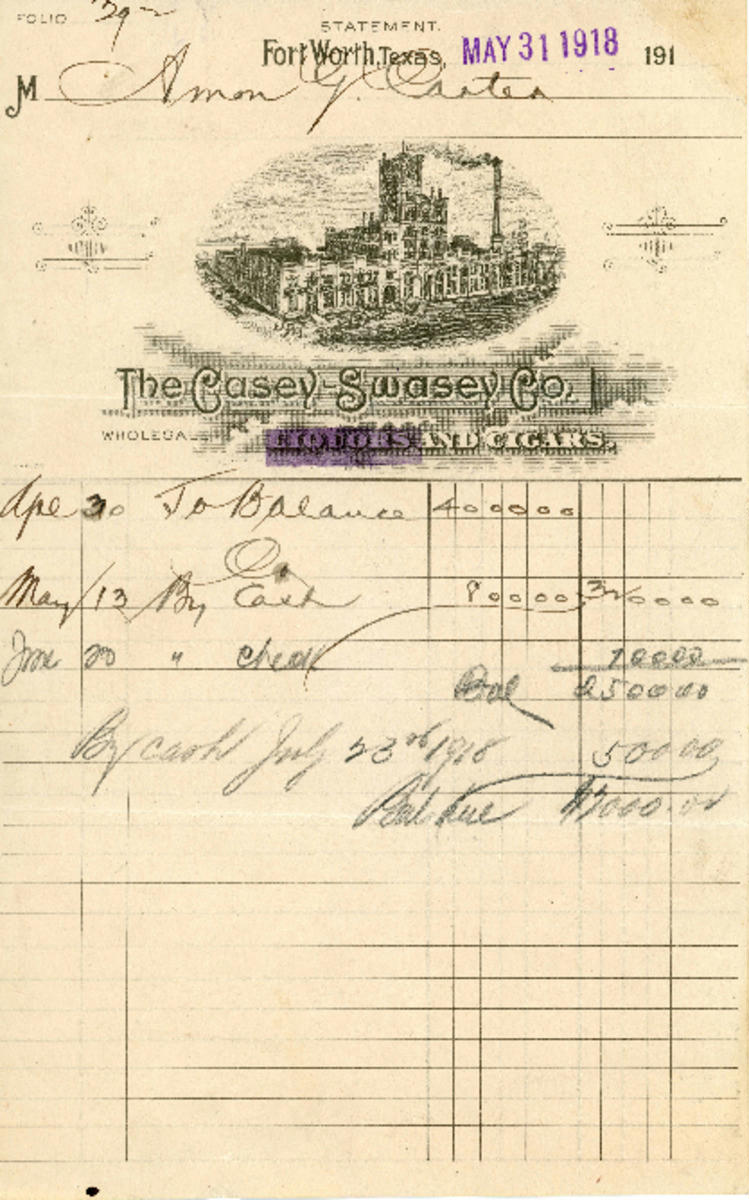 FOLIO
STATEMENT.
Fort Worth, Texas, MAY 31 1918 191
M Amon G. Carter
The Casey-Swasey Co.
WHOLESALE LIQUORS AND CIGARS.
Apr 30 To Balance 400000
Cr
May 13 By Cash 80000 320000
June 20 " Check 70000
Bal 250000
By cash July 23rd 1918 50000
Bal due $2000.00